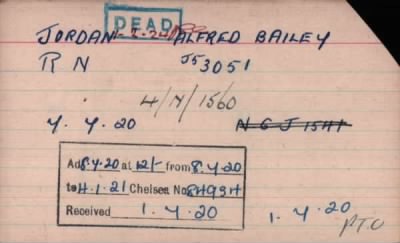 DEAD
JORDAN ALFRED BAILEY
R N J53051
4/M/1560
7. 4. 20 N G J 1541
Ad 8.4.20 at 12/- from 8.4.20
to 4.1.21 Chelsea No 8H934
Received 1. 4. 20
1. 4. 20
P.T.O